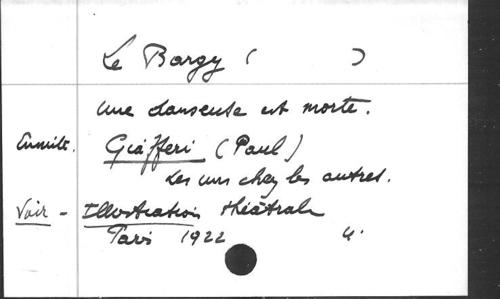 Le Bargy (          )
Une danseuse est morte.
Ensuite. Giafferi (Paul)
Les uns chez les autres.
Voir - Illustration théâtrale
Paris 1922     4.